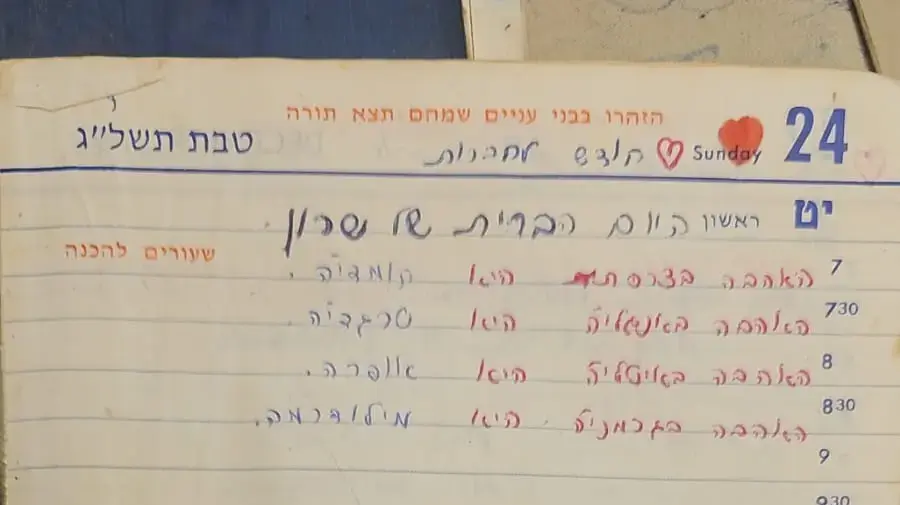 הזהרו בבני עניים שמהם תצא תורה
24 Sunday חודש לחברות טבת תשל״ג
יט ראשון היום הברית של שרון
שעורים להכנה
7 האהבה בצרפת היא קומדיה.
730 האהבה באנגליה היא טרגדיה.
8 האהבה באיטליה היא אופרה.
830 האהבה בגרמניה היא מילודרמה.
9
930